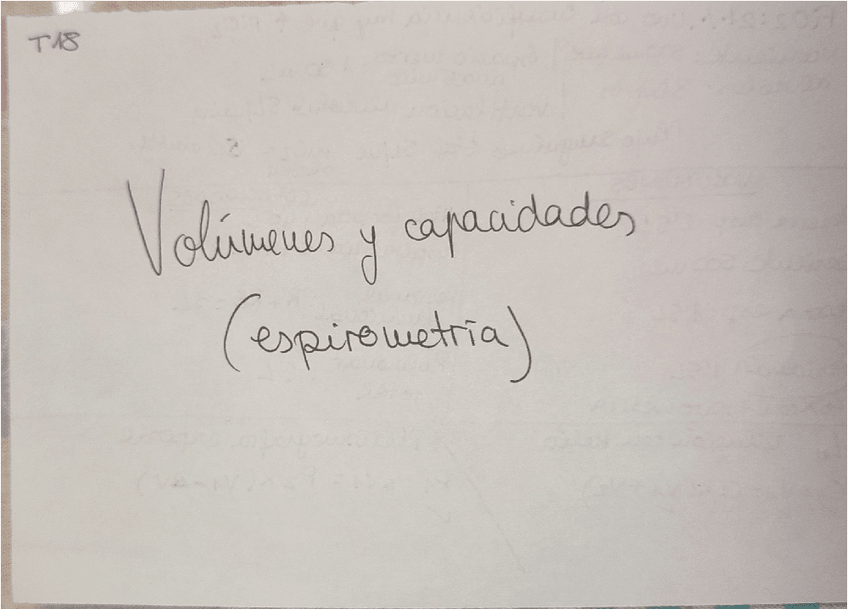 T18
Volúmenes y capacidades
(espirometría)